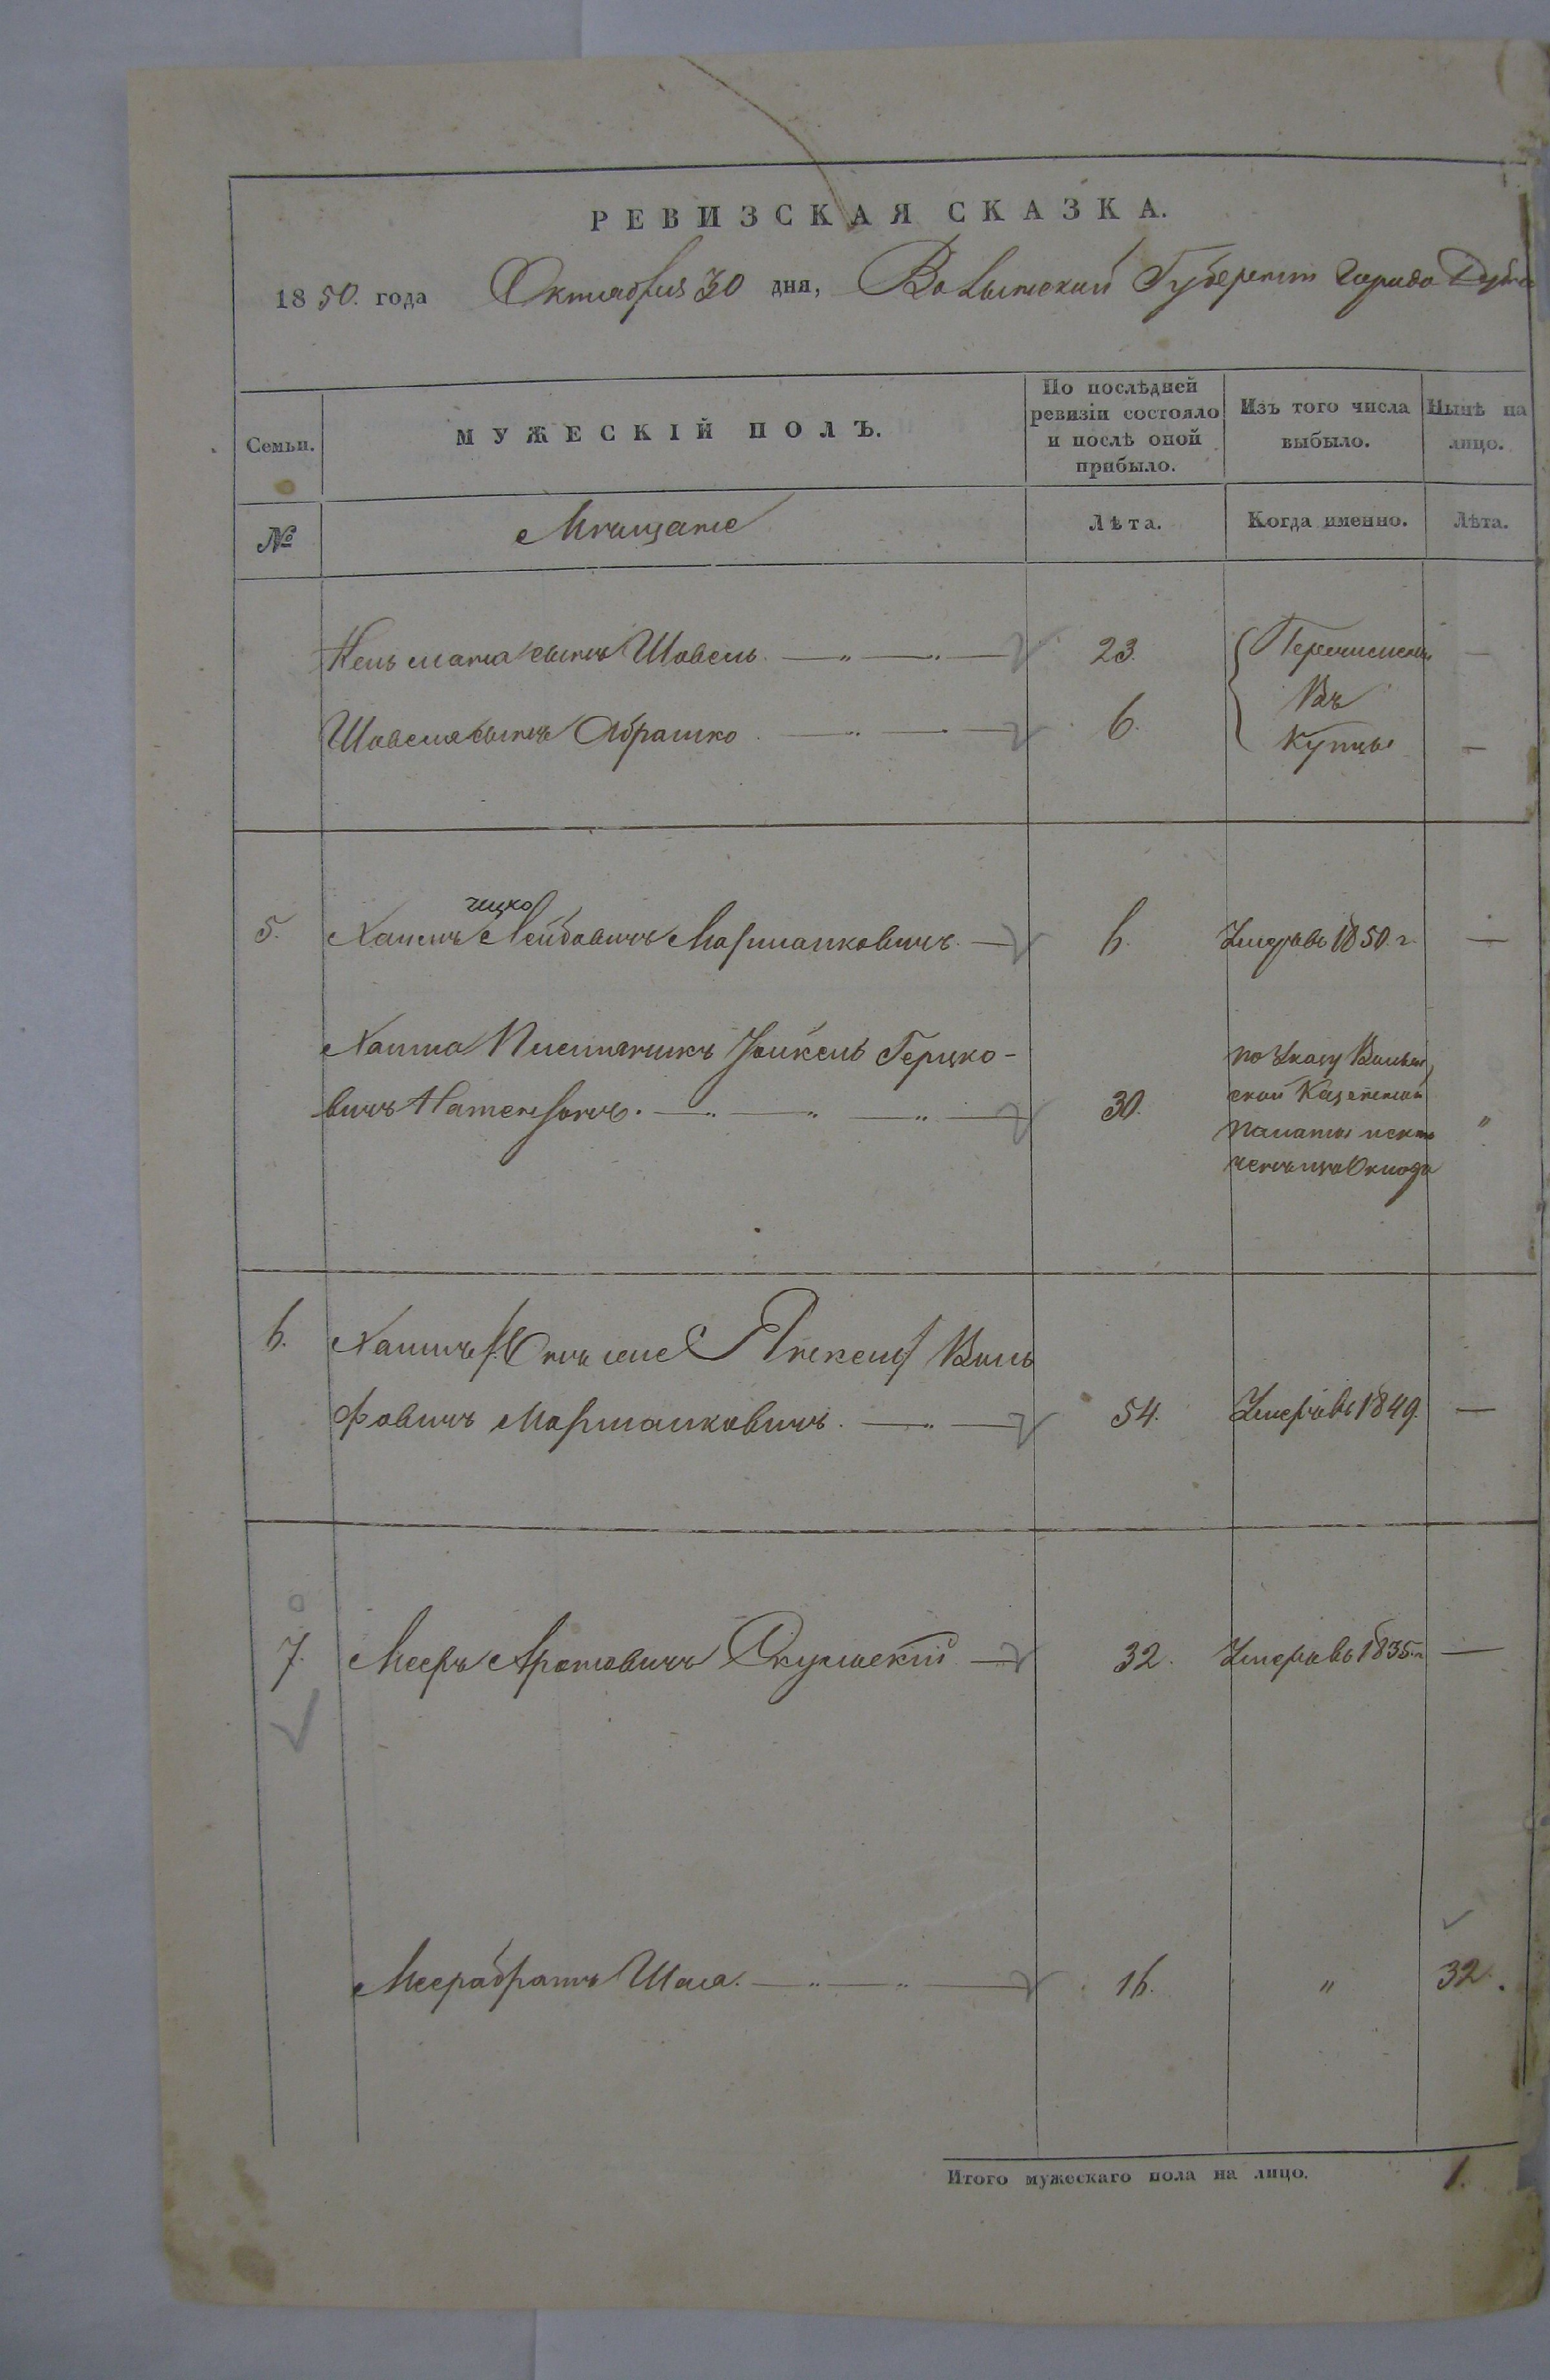 РЕВИЗСКАЯ СКАЗКА.
1850. года Октября 30 дня, Волынской Губернии Города Дубна
Семьи.
МУЖЕСКІЙ ПОЛЪ.
По послѣдней
ревизіи состояло
и послѣ оной
прибыло.
Изъ того числа
выбыло.
Нынѣ на
лицо.
№
Мещане
Лѣта.
Когда именно.
Лѣта.
сынъ Шовель 23. Перечислены —
Въ
Шовеля сынъ Абрашко 6. Купцы —
ицко
5. Хаимъ Лейбовичъ 6. Умеръ въ 1850. г. —
Герцко-
вичъ 30.
по Указу Волын
ской Казенной
палаты искл
ченъ изъ Оклада "
6. Хаимъ
Маршалковичъ 54. Умеръ въ 1849. —
7. Мееръ Ароновичъ 32. Умеръ въ 1835. г. —
Меера братъ Шая. 16. " 32.
Итого мужескаго пола на лицо. 1.